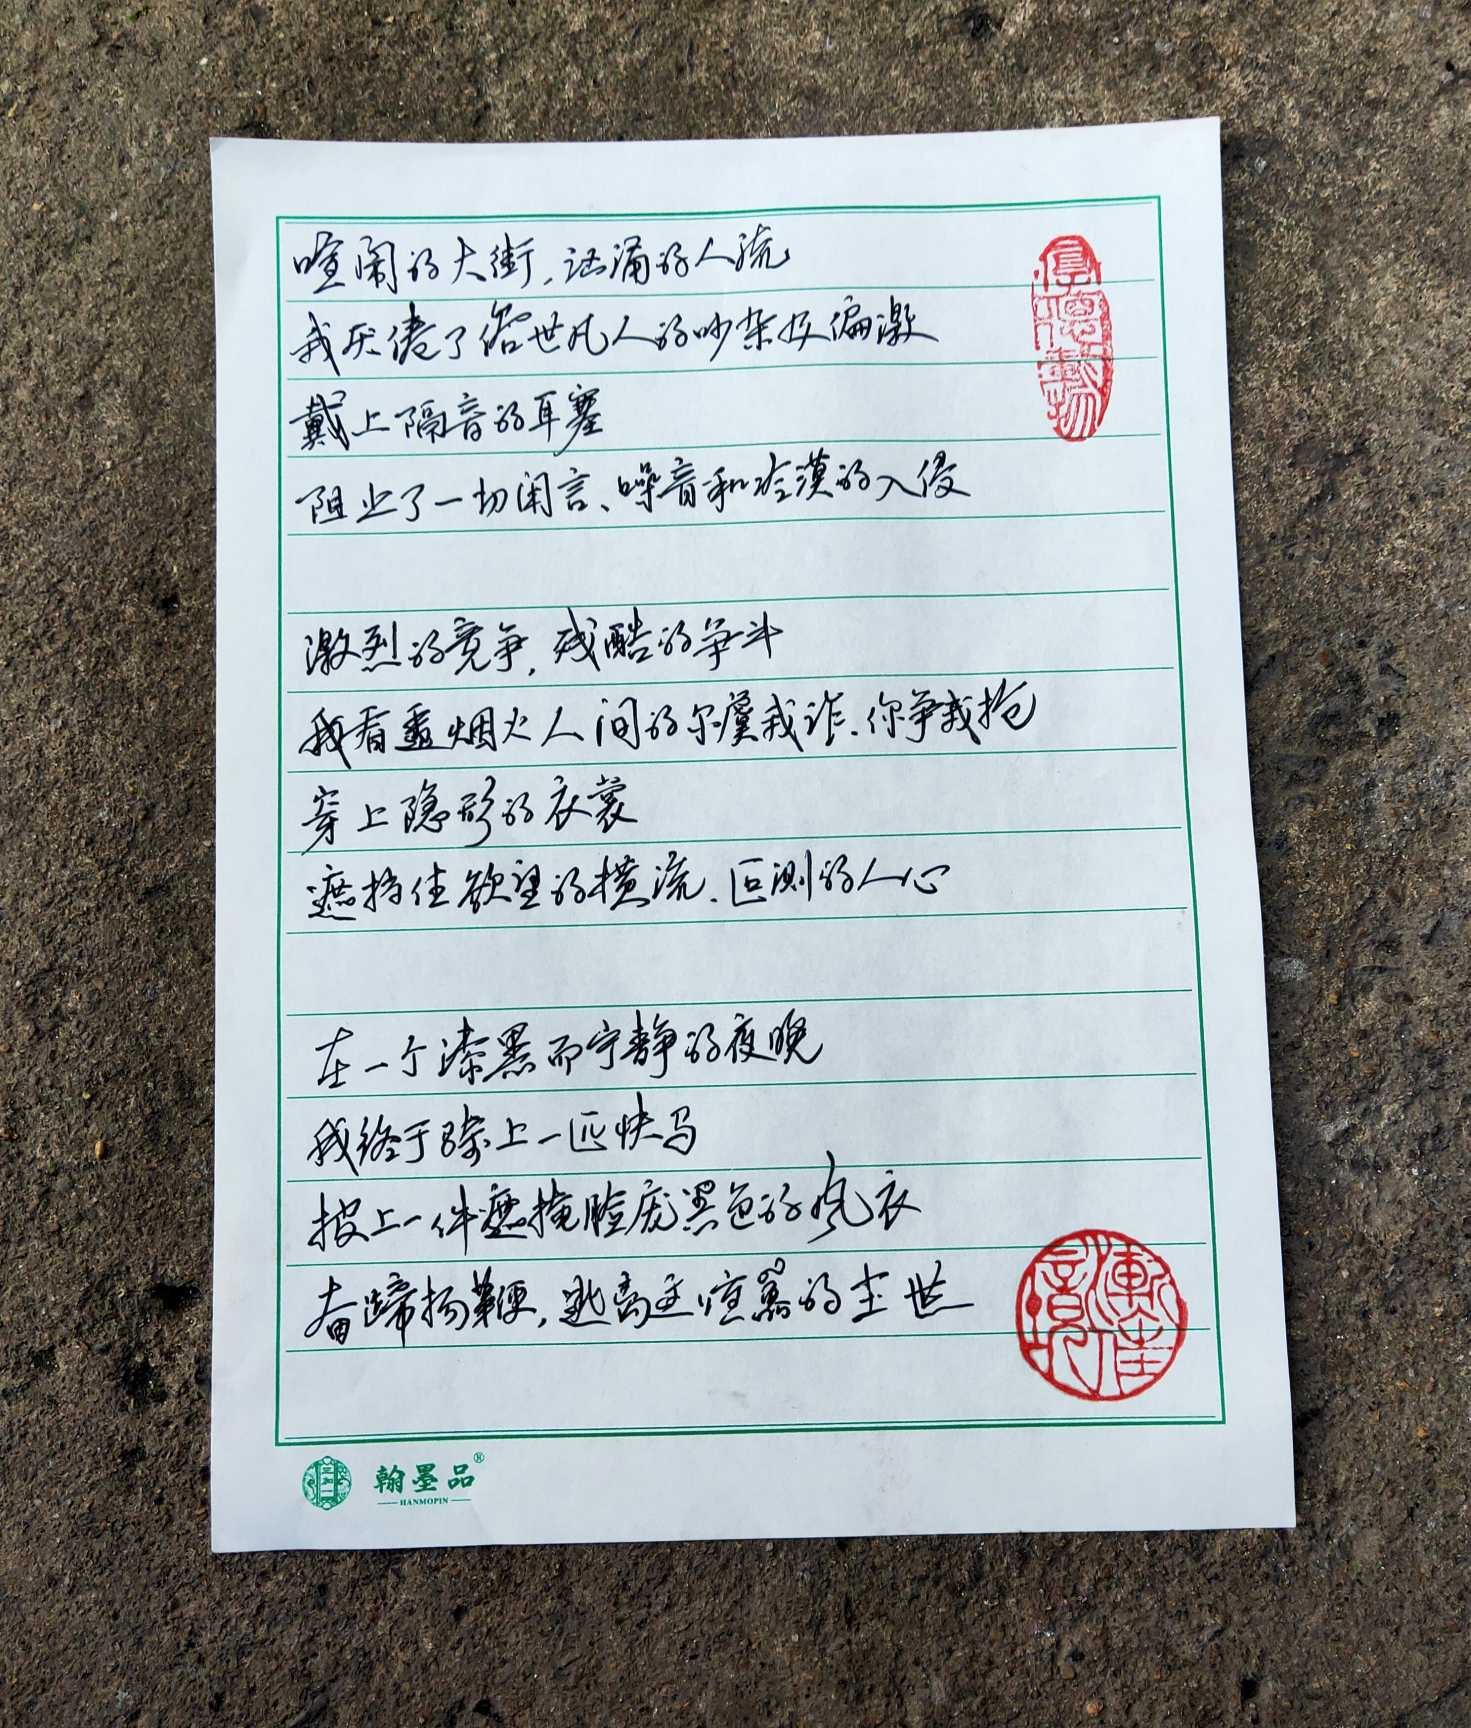 喧闹的大街,汹涌的人流
我厌倦了俗世凡人的吵杂及偏激
戴上隔音的耳塞
阻止了一切闲言、噪音和冷漠的入侵
激烈的竞争,残酷的争斗
我看透烟火人间的尔虞我诈、你争我抢
穿上隐形的衣裳
遮挡住欲望的横流、叵测的人心
在一个漆黑而宁静的夜晚
我终于骑上一匹快马
披上一件遮掩脸庞黑色的风衣
奋蹄扬鞭,逃离这喧嚣的尘世
厚德载物
翰墨品®
HANMOPIN